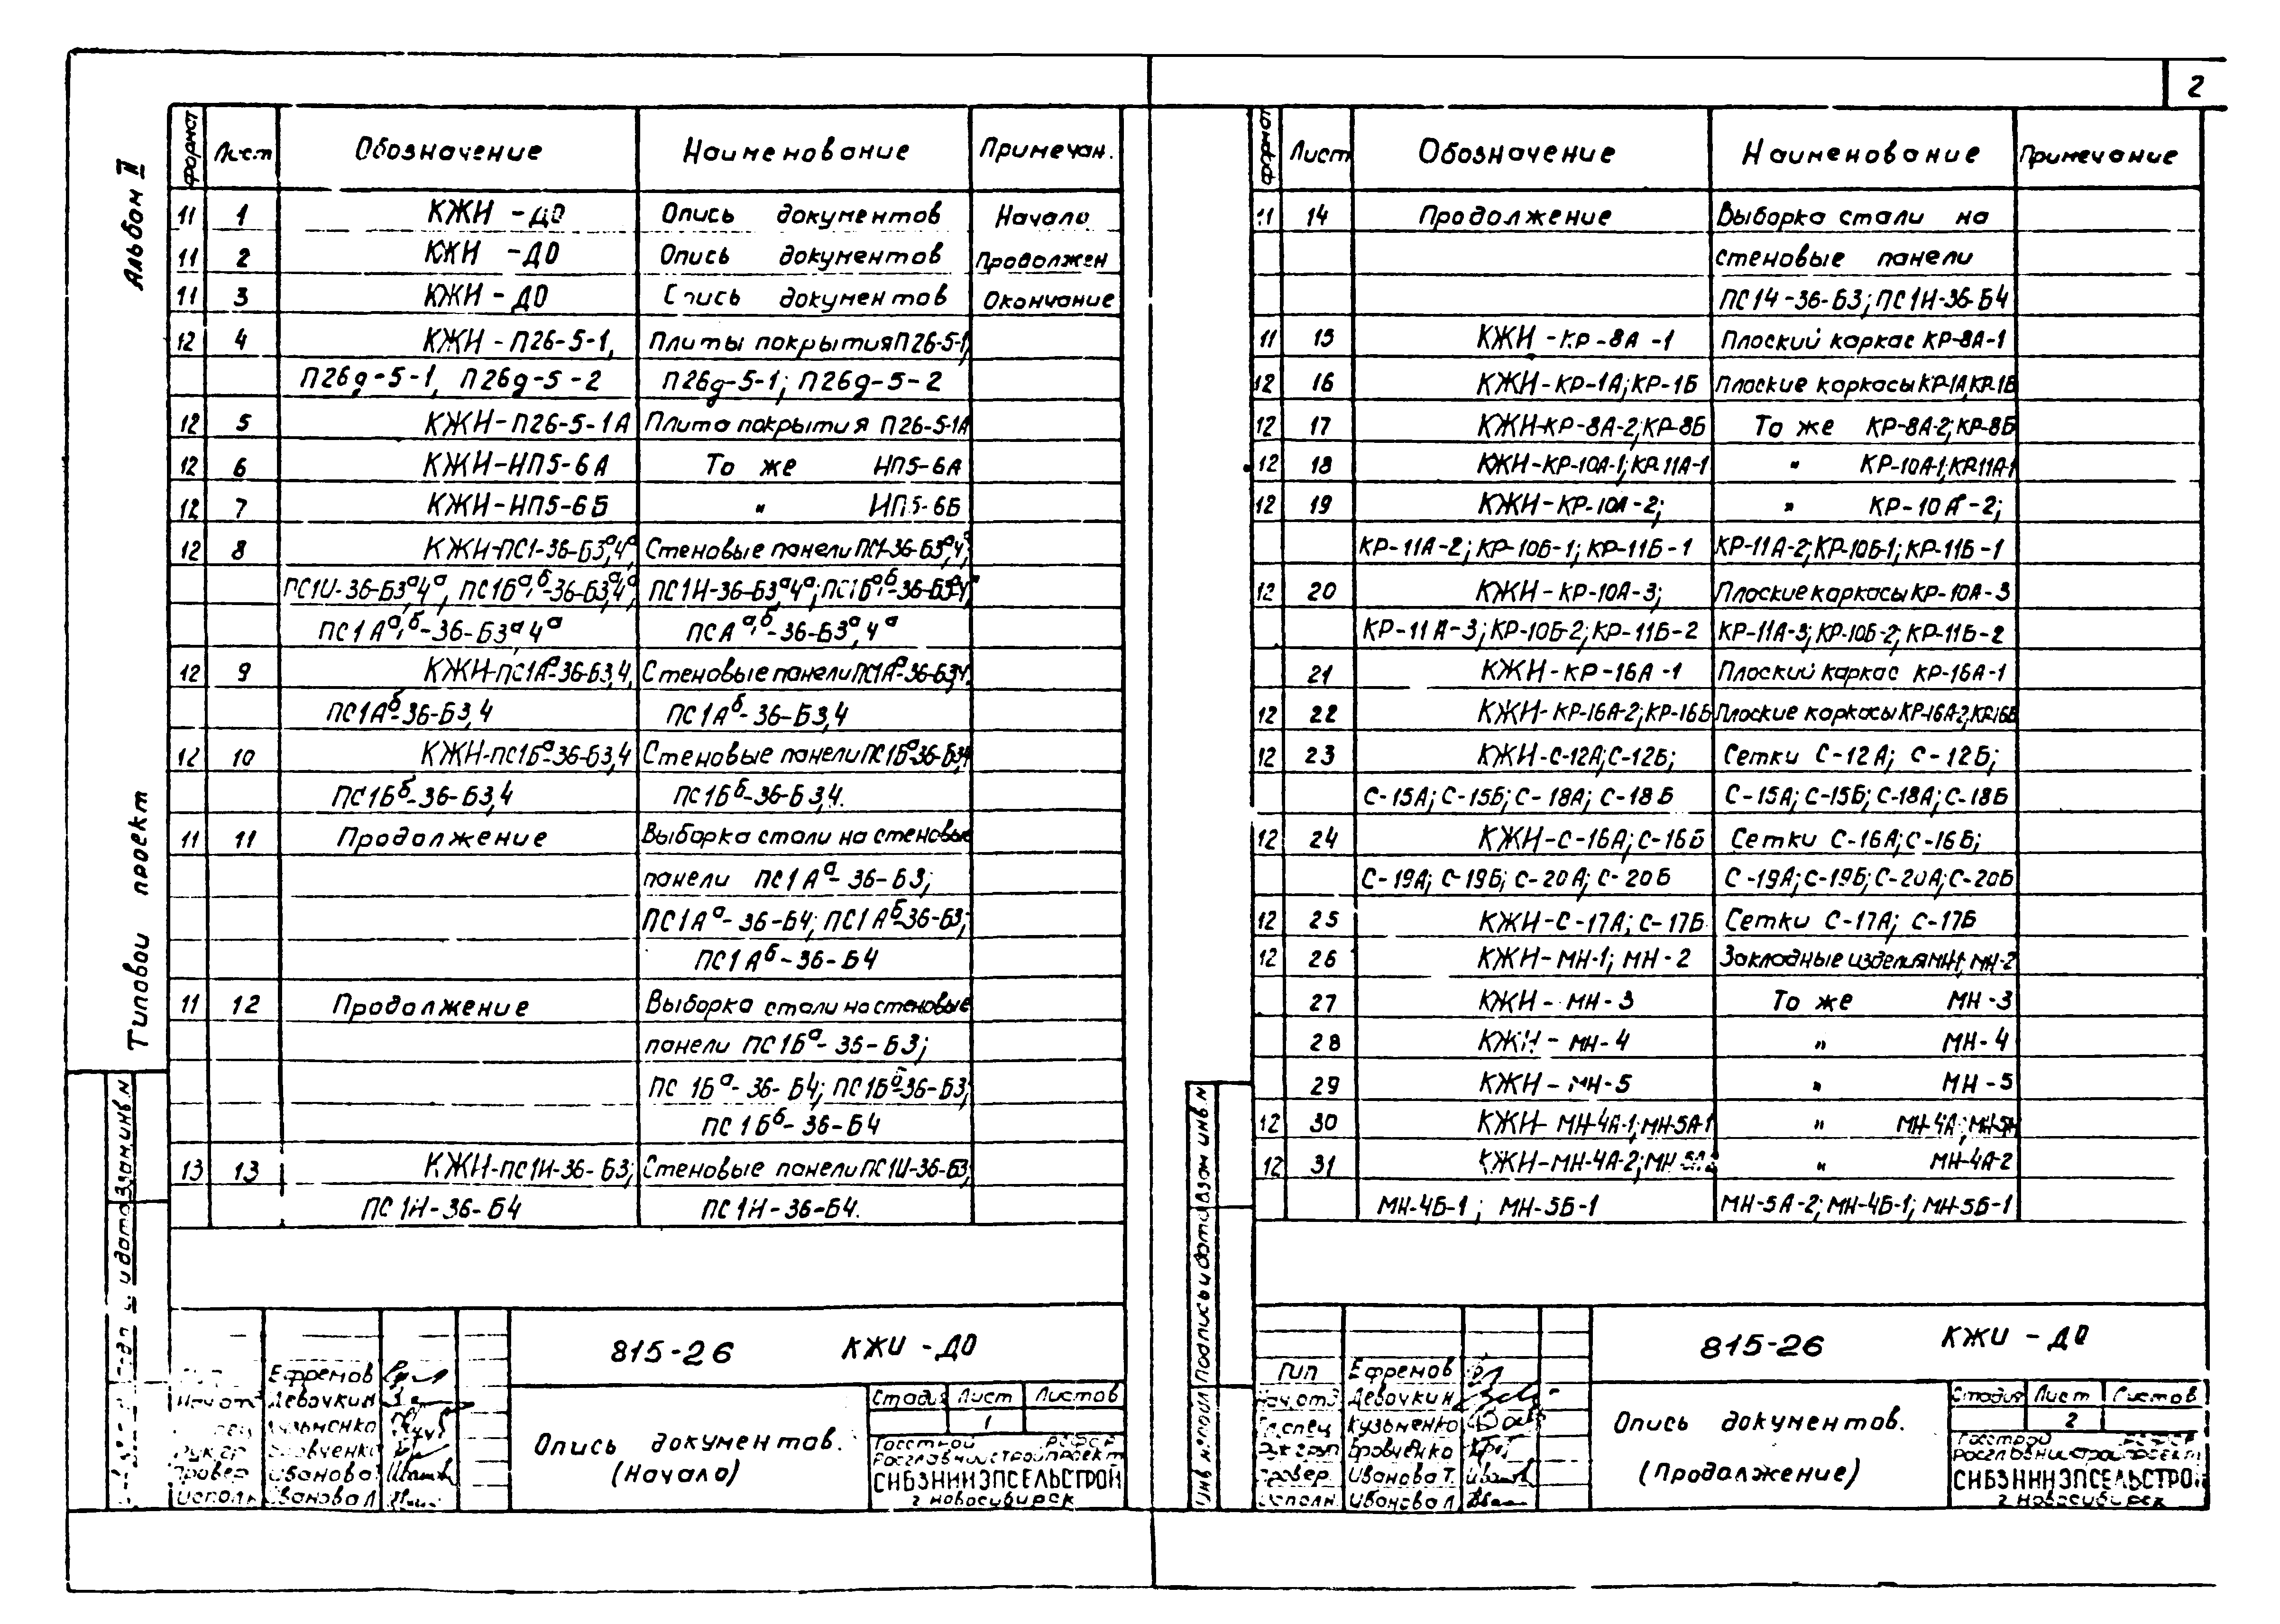 2
Альбом II
Типовой проект
Взам.инв.N
и дата
формат Лист Обозначение Наименование Примечан.
11 1 КЖИ - ДО Опись документов Начало
11 2 КЖИ - ДО Опись документов Продолжен
11 3 КЖИ - ДО Опись документов Окончание
12 4 КЖИ - П26-5-1, Плиты покрытия П26-5-1,
П26д-5-1, П26д-5-2 П26д-5-1; П26д-5-2
12 5 КЖИ-П26-5-1А Плита покрытия П26-5-1А
12 6 КЖИ-НП5-6А То же НП5-6А
12 7 КЖИ-НП5-6Б " ИП5-6Б
12 8 КЖИ-ПС1-36-Б3ᵃ,4ᵃ Стеновые панели ПС1-36-Б3ᵃ,4ᵃ;
ПС1И-36-Б3ᵃ,4ᵃ, ПС1Бᵃ,ᵇ-36-Б3ᵃ,4ᵃ, ПС1И-36-Б3ᵃ,4ᵃ; ПС1Бᵃ,ᵇ-36-Б3ᵃ,4ᵃ,
ПС1Аᵃ,ᵇ-36-Б3ᵃ,4ᵃ ПСАᵃ,ᵇ-36-Б3ᵃ,4ᵃ
12 9 КЖИ-ПС1Аᵃ-36-Б3,4, Стеновые панели ПС1Аᵃ-36-Б3,4,
ПС1Аᵇ-36-Б3,4 ПС1Аᵇ-36-Б3,4
12 10 КЖИ-ПС1Бᵃ-36-Б3,4 Стеновые панели ПС1Бᵃ-36-Б3,4
ПС1Бᵇ-36-Б3,4 ПС1Бᵇ-36-Б3,4.
11 11 Продолжение Выборка стали на стеновые
панели ПС1Аᵃ-36-Б3;
ПС1Аᵃ-36-Б4; ПС1Аᵇ-36-Б3;
ПС1Аᵇ-36-Б4
11 12 Продолжение Выборка стали на стеновые
панели ПС1Бᵃ-36-Б3;
ПС 1Бᵃ-36-Б4; ПС1Бᵇ-36-Б3;
ПС1Бᵇ-36-Б4
13 13 КЖИ-ПС1И-36-Б3; Стеновые панели ПС1И-36-Б3;
ПС1И-36-Б4 ПС1И-36-Б4.
815-26 КЖИ - ДО
Ефремов
Нач.отд Девочкин
Кузьменко
Рук.гр
Провер Иванова
Исполн Иванова Л
Опись документов.
(Начало)
Стадия Лист Листов
1
Госстрой РСФСР
Росглавниистройпроект
СИБЗНИИЭПСЕЛЬСТРОЙ
г. Новосибирск
формат Лист Обозначение Наименование Примечание
11 14 Продолжение Выборка стали на
стеновые панели
ПС14-36-Б3; ПС1И-36-Б4
11 15 КЖИ-КР-8А-1 Плоский каркас КР-8А-1
12 16 КЖИ-КР-1А; КР-1Б Плоские каркасы КР-1А, КР-1Б
12 17 КЖИ-КР-8А-2; КР-8Б То же КР-8А-2; КР-8Б
12 18 КЖИ-КР-10А-1; КР-11А-1 " КР-10А-1; КР-11А-1
12 19 КЖИ-КР-10А-2; " КР-10А-2;
КР-11А-2; КР-10Б-1; КР-11Б-1 КР-11А-2; КР-10Б-1; КР-11Б-1
12 20 КЖИ-КР-10А-3; Плоские каркасы КР-10А-3
КР-11А-3; КР-10Б-2; КР-11Б-2 КР-11А-3; КР-10Б-2; КР-11Б-2
21 КЖИ-КР-16А-1 Плоский каркас КР-16А-1
12 22 КЖИ-КР-16А-2; КР-16Б Плоские каркасы КР-16А-2, КР-16Б
12 23 КЖИ-С-12А; С-12Б; Сетки С-12А; С-12Б;
С-15А; С-15Б; С-18А; С-18Б С-15А; С-15Б; С-18А; С-18Б
12 24 КЖИ-С-16А; С-16Б Сетки С-16А; С-16Б;
С-19А; С-19Б; С-20А; С-20Б С-19А; С-19Б; С-20А; С-20Б
12 25 КЖИ-С-17А; С-17Б Сетки С-17А; С-17Б
12 26 КЖИ-МН-1; МН-2 Закладные изделия МН-1; МН-2
27 КЖИ-МН-3 То же МН-3
28 КЖИ-МН-4 " МН-4
29 КЖИ-МН-5 " МН-5
12 30 КЖИ-МН-4А-1; МН-5А-1 " МН-4А; МН-5А
12 31 КЖИ-МН-4А-2; МН-5А-2 " МН-4А-2
МН-4Б-1; МН-5Б-1 МН-5А-2; МН-4Б-1; МН-5Б-1
Инв.N подл Подпись и дата Взам инв.N
815-26 КЖИ - ДО
ГИП Ефремов
Нач.отд Девочкин
Гл.спец Кузьменко
Рук.груп Бровченко
Провер. Иванова Т.
Исполн. Иванова Л
Опись документов.
(Продолжение)
Стадия Лист Листов
2
Госстрой РСФСР
Росглавниистройпроект
СИБЗНИИЭПСЕЛЬСТРОЙ
г. Новосибирск